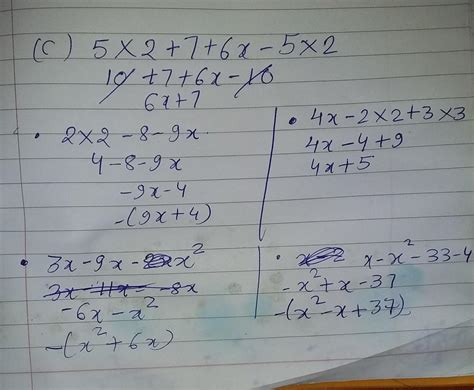 (C) 5×2+7+6x-5×2
10+7+6x-10
6x+7
• 2×2-8-9x
4-8-9x
-9x-4
-(9x+4)
• 4x-2×2+3×3
4x-4+9
4x+5
• 3x-9x-x²
3x-11x-8x
-6x-x²
-(x²+6x)
• x-x²-33-4
-x²+x-37
-(x²-x+37)